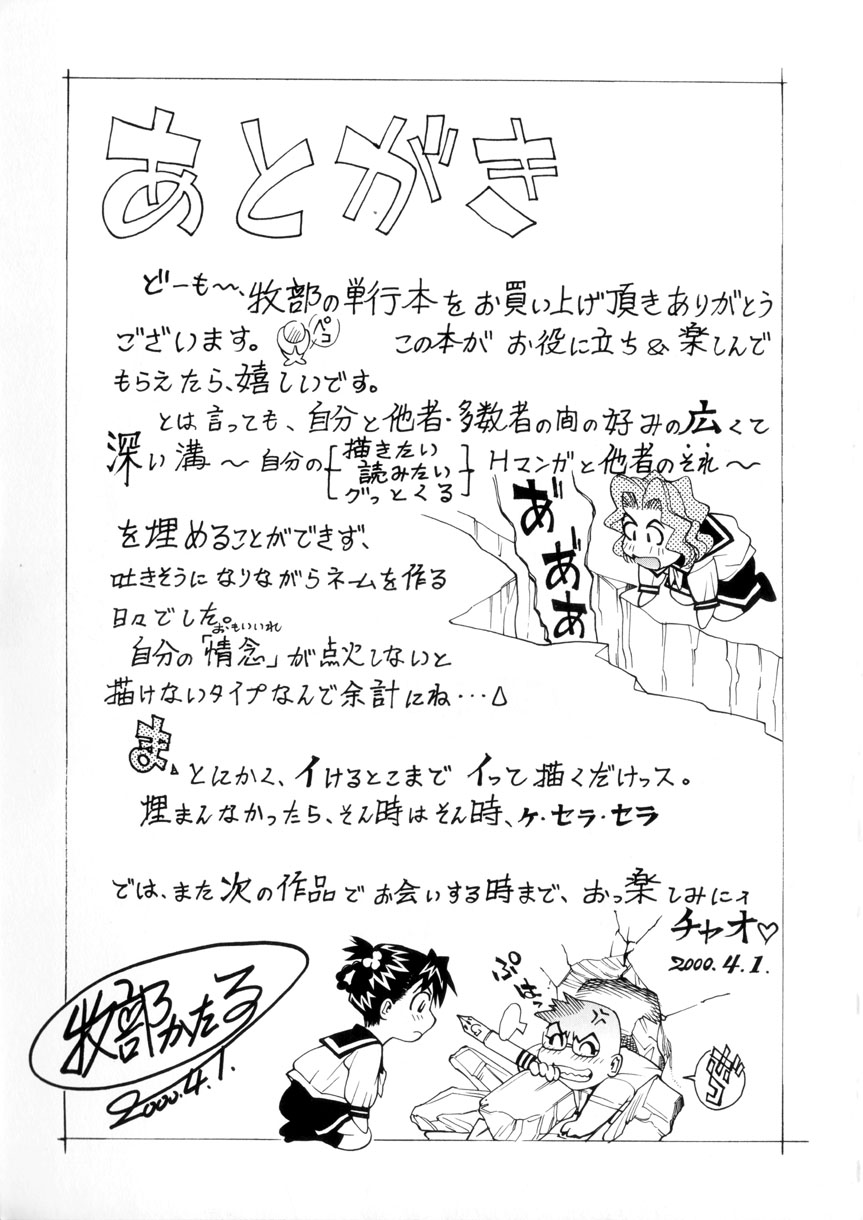 あとがき
どーも〜、牧部の単行本をお買い上げ頂きありがとう
ございます。 ペコ この本が お役に立ち & 楽しんで
もらえたら、嬉しいです。
とは言っても、自分と他者・多数者の間の好みの広くて
深い溝〜自分の[描きたい
読みたい
グッとくる]Hマンガと他者のそれ〜
を埋めることができず、
吐きそうになりながらネームを作る
日々でした。
おもいいれ
自分の「情念」が点火しないと
描けないタイプなんで余計にね…
あ゛
あ゛あ゛
ま、とにかく、イけるとこまで イって描くだけっス。
埋まんなかったら、そん時はそん時、ケ・セラ・セラ
では、また次の作品でお会いする時まで、おっ楽しみにィ
チャオ♡
2000.4.1.
ぷはー
牧部かたる
2000.4.1.